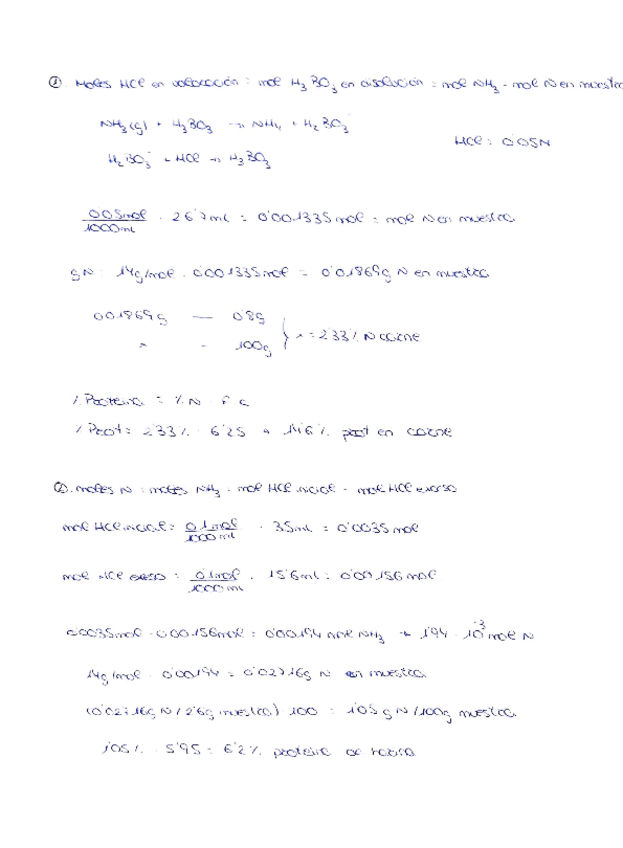 ① Moles HCl en valoración = mol H3BO3 en disolución = mol NH3 = mol N en muestra
NH3(g) + H3BO3 → NH4 + H2BO3⁻
HCl: 0'05N
H2BO3⁻ + HCl → H3BO3
0'05mol / 1000ml · 26'7ml = 0'001335mol = mol N en muestra
gN: 14g/mol · 0'001335mol = 0'01869g N en muestra
0'01869g — 0'8g
x - 100g } x = 2'33% N carne
% Proteina = % N · F c
% Prot = 2'33% · 6'25 = 14'6% prot en carne
② moles N = moles NH3 = mol HCl inicial - mol HCl exceso
mol HCl inicial = 0'1mol / 1000ml · 35ml = 0'0035mol
mol HCl exceso = 0'1mol / 1000ml · 15'6ml = 0'00156mol
0'0035mol - 0'00156mol = 0'00194 mol NH3 → 1'94 · 10⁻³ mol N
14g/mol · 0'00194 = 0'02716g N en muestra
(0'02716g N / 2'6g muestra) 100 = 1'05 g N/100g muestra
1'05% · 5'95 = 6'2% proteina de